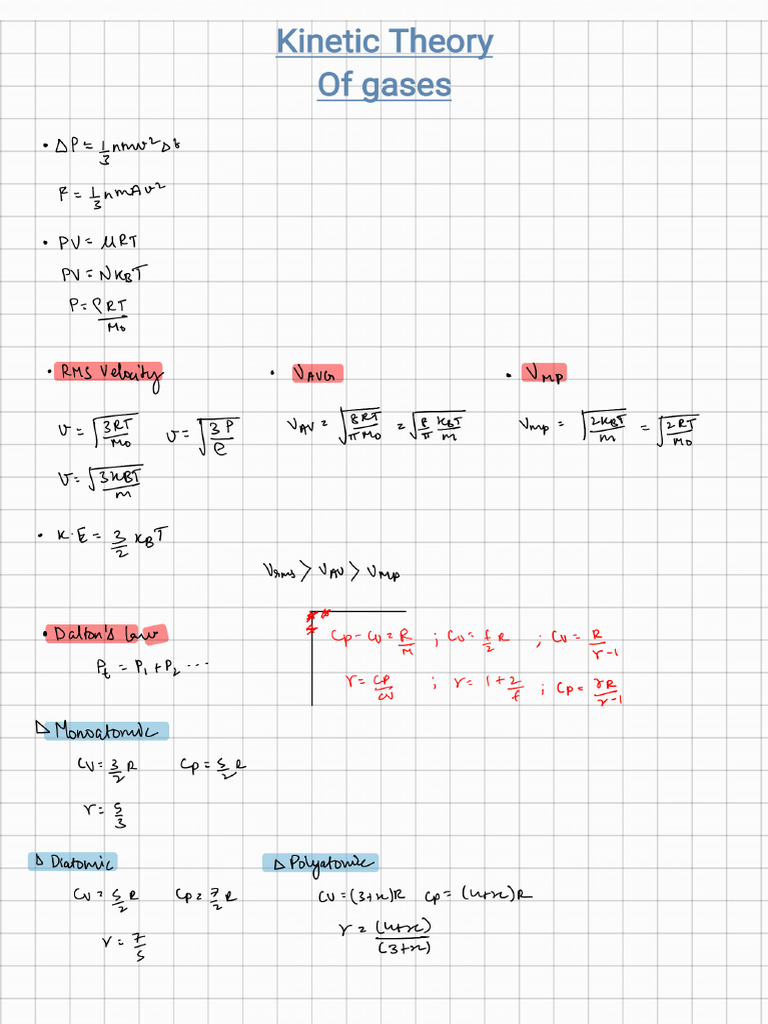 Kinetic Theory
Of gases
• ΔP = 1/3 nmv² Δt
F = 1/3 nmAv²
• PV = μRT
PV = NK_BT
P = ρRT/M₀
• RMS Velocity
v = √(3RT/M₀) v = √(3P/ρ)
v = √(3K_BT/m)
• V_AVG
V_AV = √(8RT/πM₀) = √(8/π K_BT/m)
• V_MP
V_mp = √(2K_BT/m) = √(2RT/M₀)
• K.E = 3/2 K_BT
V_rms > V_AV > V_MP
• Dalton's Law
P_t = P₁ + P₂ ...
Cp - Cv = R/M ; Cv = f/2 R ; Cv = R/γ-1
γ = CP/CV ; γ = 1 + 2/f ; Cp = γR/γ-1
Δ Monoatomic
Cv = 3/2 R Cp = 5/2 R
γ = 5/3
Δ Diatomic
Cv = 5/2 R Cp = 7/2 R
γ = 7/5
Δ Polyatomic
Cv = (3+x)R Cp = (4+x)R
γ = (4+x)/(3+x)